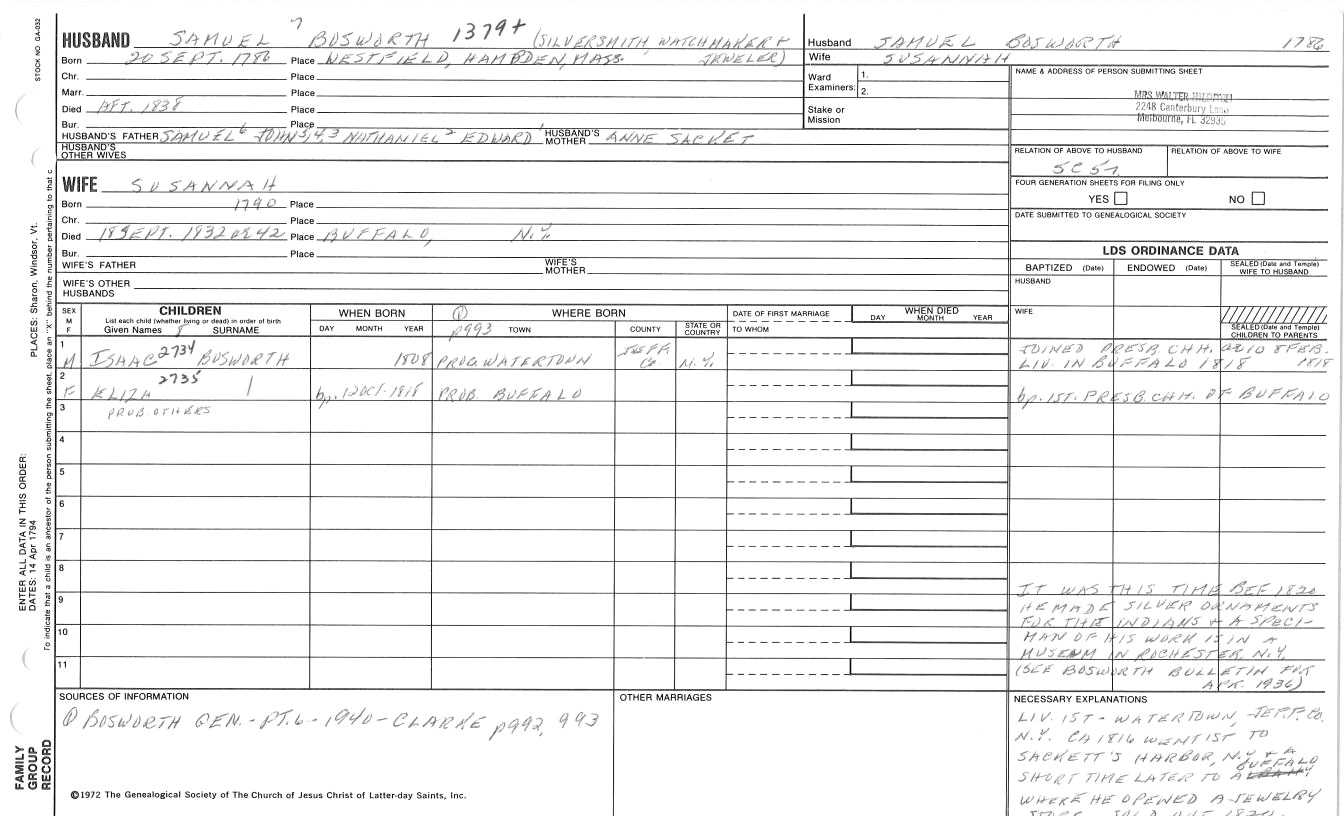 STOCK NO. GA-032
HUSBAND SAMUEL 7 BOSWORTH 1379+ (SILVERSMITH, WATCHMAKER +
Born 20 SEPT. 1786 Place WESTFIELD, HAMBDEN, MASS. JEWELER)
Chr. Place
Marr. Place
Died AFT. 1838 Place
Bur. Place
HUSBAND'S FATHER SAMUEL 6 JOHN 5,4,3 NATHANIEL 2 EDWARD 1 HUSBAND'S MOTHER ANNE SACKET
HUSBAND'S OTHER WIVES
Husband SAMUEL BOSWORTH 1786
Wife SUSANNAH
Ward Examiners: 1.
2.
Stake or Mission
NAME & ADDRESS OF PERSON SUBMITTING SHEET
MRS WALTER
2248 Canterbury Lane
Melbourne, FL 32935
RELATION OF ABOVE TO HUSBAND RELATION OF ABOVE TO WIFE
5C 5
FOUR GENERATION SHEETS FOR FILING ONLY
YES NO
DATE SUBMITTED TO GENEALOGICAL SOCIETY
WIFE SUSANNAH
Born 1790 Place
Chr. Place
Died 18 SEPT. 1832 OR 42 Place BUFFALO, N.Y.
Bur. Place
WIFE'S FATHER WIFE'S MOTHER
WIFE'S OTHER HUSBANDS
LDS ORDINANCE DATA
BAPTIZED (Date) ENDOWED (Date) SEALED (Date and Temple) WIFE TO HUSBAND
HUSBAND
WIFE
SEALED (Date and Temple) CHILDREN TO PARENTS
SEX M F CHILDREN
List each child (whether living or dead) in order of birth
Given Names 8 SURNAME
WHEN BORN
DAY MONTH YEAR
① p993 WHERE BORN
TOWN COUNTY STATE OR COUNTRY
DATE OF FIRST MARRIAGE
TO WHOM
WHEN DIED
DAY MONTH YEAR
1 M ISAAC 2734 BOSWORTH 1808 PROB. WATERTOWN JEFF. Co N.Y. JOINED PRESB. CHH. 8 FEB. 1818
LIV. IN BUFFALO 1818
2 F ELIZA 2735 bp. 12 OCT. 1818 PROB. BUFFALO bp. 1ST. PRESB. CHH. OF BUFFALO
3 PROB OTHERS
4
5
6
7
8
9
10
11
IT WAS THIS TIME BEF 1820
HE MADE SILVER ORNAMENTS
FOR THE INDIANS + A SPECI-
MAN OF HIS WORK IS IN A
MUSEUM IN ROCHESTER, N.Y.
(SEE BOSWORTH BULLETIN FOR
APR. 1936)
SOURCES OF INFORMATION
① BOSWORTH GEN. - PT. 6 - 1940 - CLARKE p992, 993
OTHER MARRIAGES
NECESSARY EXPLANATIONS
LIV. 1ST - WATERTOWN, JEFF. CO.
N.Y. CA 1816 WENT 1ST TO
SACKETT'S HARBOR, N.Y. + A
SHORT TIME LATER TO BUFFALO
WHERE HE OPENED A JEWELRY
©1972 The Genealogical Society of The Church of Jesus Christ of Latter-day Saints, Inc.
PLACES: Sharon, Windsor, Vt.
ENTER ALL DATA IN THIS ORDER:
DATES: 14 Apr 1794
To indicate that a child is an ancestor of the person submitting the sheet, place an "X" behind the number pertaining to that c
FAMILY
GROUP
RECORD